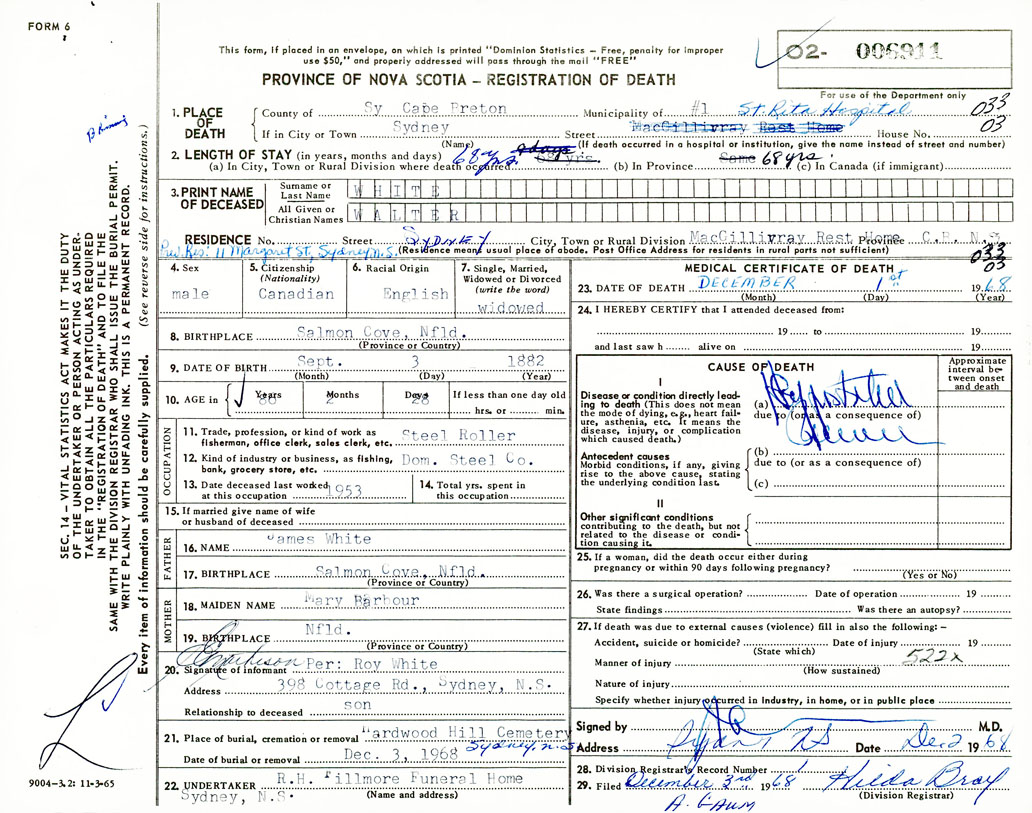 FORM 6
This form, if placed in an envelope, on which is printed "Dominion Statistics – Free, penalty for improper
use $50," and properly addressed will pass through the mail "FREE"
PROVINCE OF NOVA SCOTIA – REGISTRATION OF DEATH
02- 006911
For use of the Department only
033
03
1. PLACE OF DEATH
County of Sy Cape Breton Municipality of #1 St. Rita Hospital
If in City or Town Sydney Street MacGillivray Rest Home House No.
(Name) (If death occurred in a hospital or institution, give the name instead of street and number)
2. LENGTH OF STAY (in years, months and days)
(a) In City, Town or Rural Division where death occurred 68 yrs. 68 yrs. (b) In Province Same 68 yrs. (c) In Canada (if immigrant)
3. PRINT NAME OF DECEASED
Surname or Last Name WHITE
All Given or Christian Names WALTER
RESIDENCE No. Street SYDNEY City, Town or Rural Division MacGillivray Rest Home Province C.B. N.S.
Prev. Res: 11 Margaret St, Sydney N.S. (Residence means usual place of abode. Post Office Address for residents in rural parts not sufficient)
033
03
4. Sex male
5. Citizenship (Nationality) Canadian
6. Racial Origin English
7. Single, Married, Widowed or Divorced (write the word) widowed
8. BIRTHPLACE Salmon Cove, Nfld.
(Province or Country)
9. DATE OF BIRTH Sept. 3 1882
(Month) (Day) (Year)
10. AGE in Years 86 Months 2 Days 28 If less than one day old
hrs. or min.
OCCUPATION
11. Trade, profession, or kind of work as fisherman, office clerk, sales clerk, etc. Steel Roller
12. Kind of industry or business, as fishing, bank, grocery store, etc. Dom. Steel Co.
13. Date deceased last worked at this occupation 1953
14. Total yrs. spent in this occupation
15. If married give name of wife or husband of deceased
FATHER
16. NAME James White
17. BIRTHPLACE Salmon Cove, Nfld.
(Province or Country)
MOTHER
18. MAIDEN NAME Mary Barbour
19. BIRTHPLACE Nfld.
(Province or Country)
20. Signature of informant Per: Roy White
Address 398 Cottage Rd., Sydney, N.S.
Relationship to deceased son
21. Place of burial, cremation or removal Hardwood Hill Cemetery
Sydney, N.S.
Date of burial or removal Dec. 3, 1968
22. UNDERTAKER R.H. Fillmore Funeral Home
Sydney, N.S. (Name and address)
MEDICAL CERTIFICATE OF DEATH
23. DATE OF DEATH DECEMBER 1st 1968
(Month) (Day) (Year)
24. I HEREBY CERTIFY that I attended deceased from:
19 to 19
and last saw h alive on 19
CAUSE OF DEATH
Approximate interval between onset and death
I
Disease or condition directly leading to death (This does not mean the mode of dying, e.g., heart failure, asthenia, etc. It means the disease, injury, or complication which caused death.)
(a)
due to (or as a consequence of)
Antecedent causes
Morbid conditions, if any, giving rise to the above cause, stating the underlying condition last.
(b)
due to (or as a consequence of)
(c)
II
Other significant conditions contributing to the death, but not related to the disease or condition causing it.
25. If a woman, did the death occur either during pregnancy or within 90 days following pregnancy?
(Yes or No)
26. Was there a surgical operation? Date of operation 19
State findings Was there an autopsy?
27. If death was due to external causes (violence) fill in also the following: –
Accident, suicide or homicide? Date of injury 19
(State which)
Manner of injury 522x
(How sustained)
Nature of injury
Specify whether injury occurred in Industry, in home, or in public place
Signed by M.D.
Address Date Dec 2 1968
28. Division Registrar's Record Number
29. Filed December 3rd 1968 Hilda Bray
(Division Registrar)
A. GAUM
SEC. 14 – VITAL STATISTICS ACT MAKES IT THE DUTY
OF THE UNDERTAKER OR PERSON ACTING AS UNDER-
TAKER TO OBTAIN ALL THE PARTICULARS REQUIRED
IN THE "REGISTRATION OF DEATH" AND TO FILE THE
SAME WITH THE DIVISION REGISTRAR WHO SHALL ISSUE THE BURIAL PERMIT.
WRITE PLAINLY WITH UNFADING INK. THIS IS A PERMANENT RECORD.
Every item of information should be carefully supplied. (See reverse side for instructions.)
9004-3.2: 11-3-65